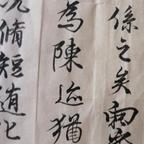 係之矣
為陳迹猶
況脩短隨化